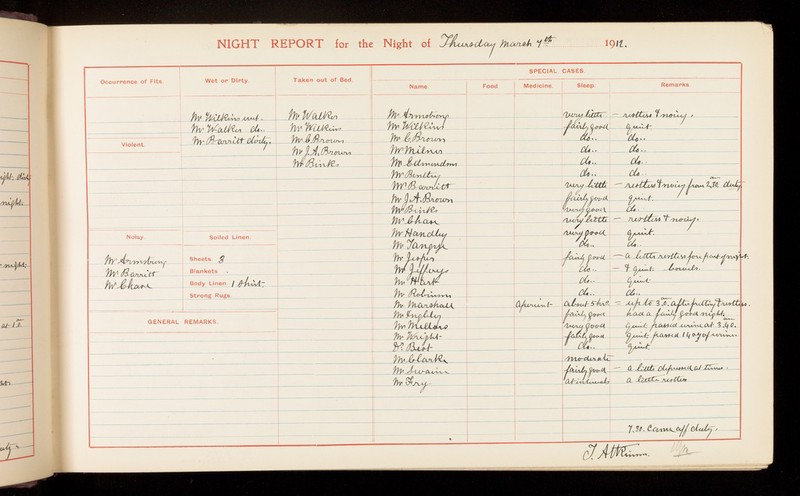 NIGHT REPORT for the Night of Thursday March 7th 1912.
SPECIAL CASES.
Occurrence of Fits.
Wet or Dirty.
Taken out of Bed.
Name.
Food
Medicine.
Sleep.
Remarks.
Mr Wilkins wet.
Mr Walker do.
Mr Barritt dirty.
Mr Walker
Mr Wilkins
Mr C. Brown
Mr J. A. Brown
Mr Binks
Violent.
Noisy.
Mr Armstrong
Mr Barritt
Mr Chaon
Soiled Linen.
Sheets 8
Blankets
Body Linen 1 Shirt
Strong Rugs
GENERAL REMARKS.
Mr Armstrong very little — restless & noisy.
Mr Wilkins fairly good quiet
Mr C. Brown do.. do..
Mr Milner do.. do..
Mr Edmundson do.. do..
Mr Bentley do.. do..
Mr Barritt very little — restless & noisy from 2.30. dirty
Mr J. A. Brown fairly good quiet.
Mr Binks very good do.
Mr Chaon very little — restless & noisy.
Mr Handley very good quiet.
Mr Tangye do.. do..
Mr fairly good — a little restless
Mr Jeffery do.. — & quiet. bowels.
Mr Hart do.. quiet
Mr Robinson do.. do..
Mr Marshall Aperient about 5 hrs. — up to 3.0. after &restless.
Mr fairly good had a fairly good night
Mr very good quiet passed urine at 3.40.
Mr Wright fairly good quiet. passed 14 oz of urine
do.. quiet
Mr Clark moderate
Mr Swain fairly good — a little depressed at times.
Mr Fry at intervals a little restless
7.30. Came off duty.
J. Atkinson.